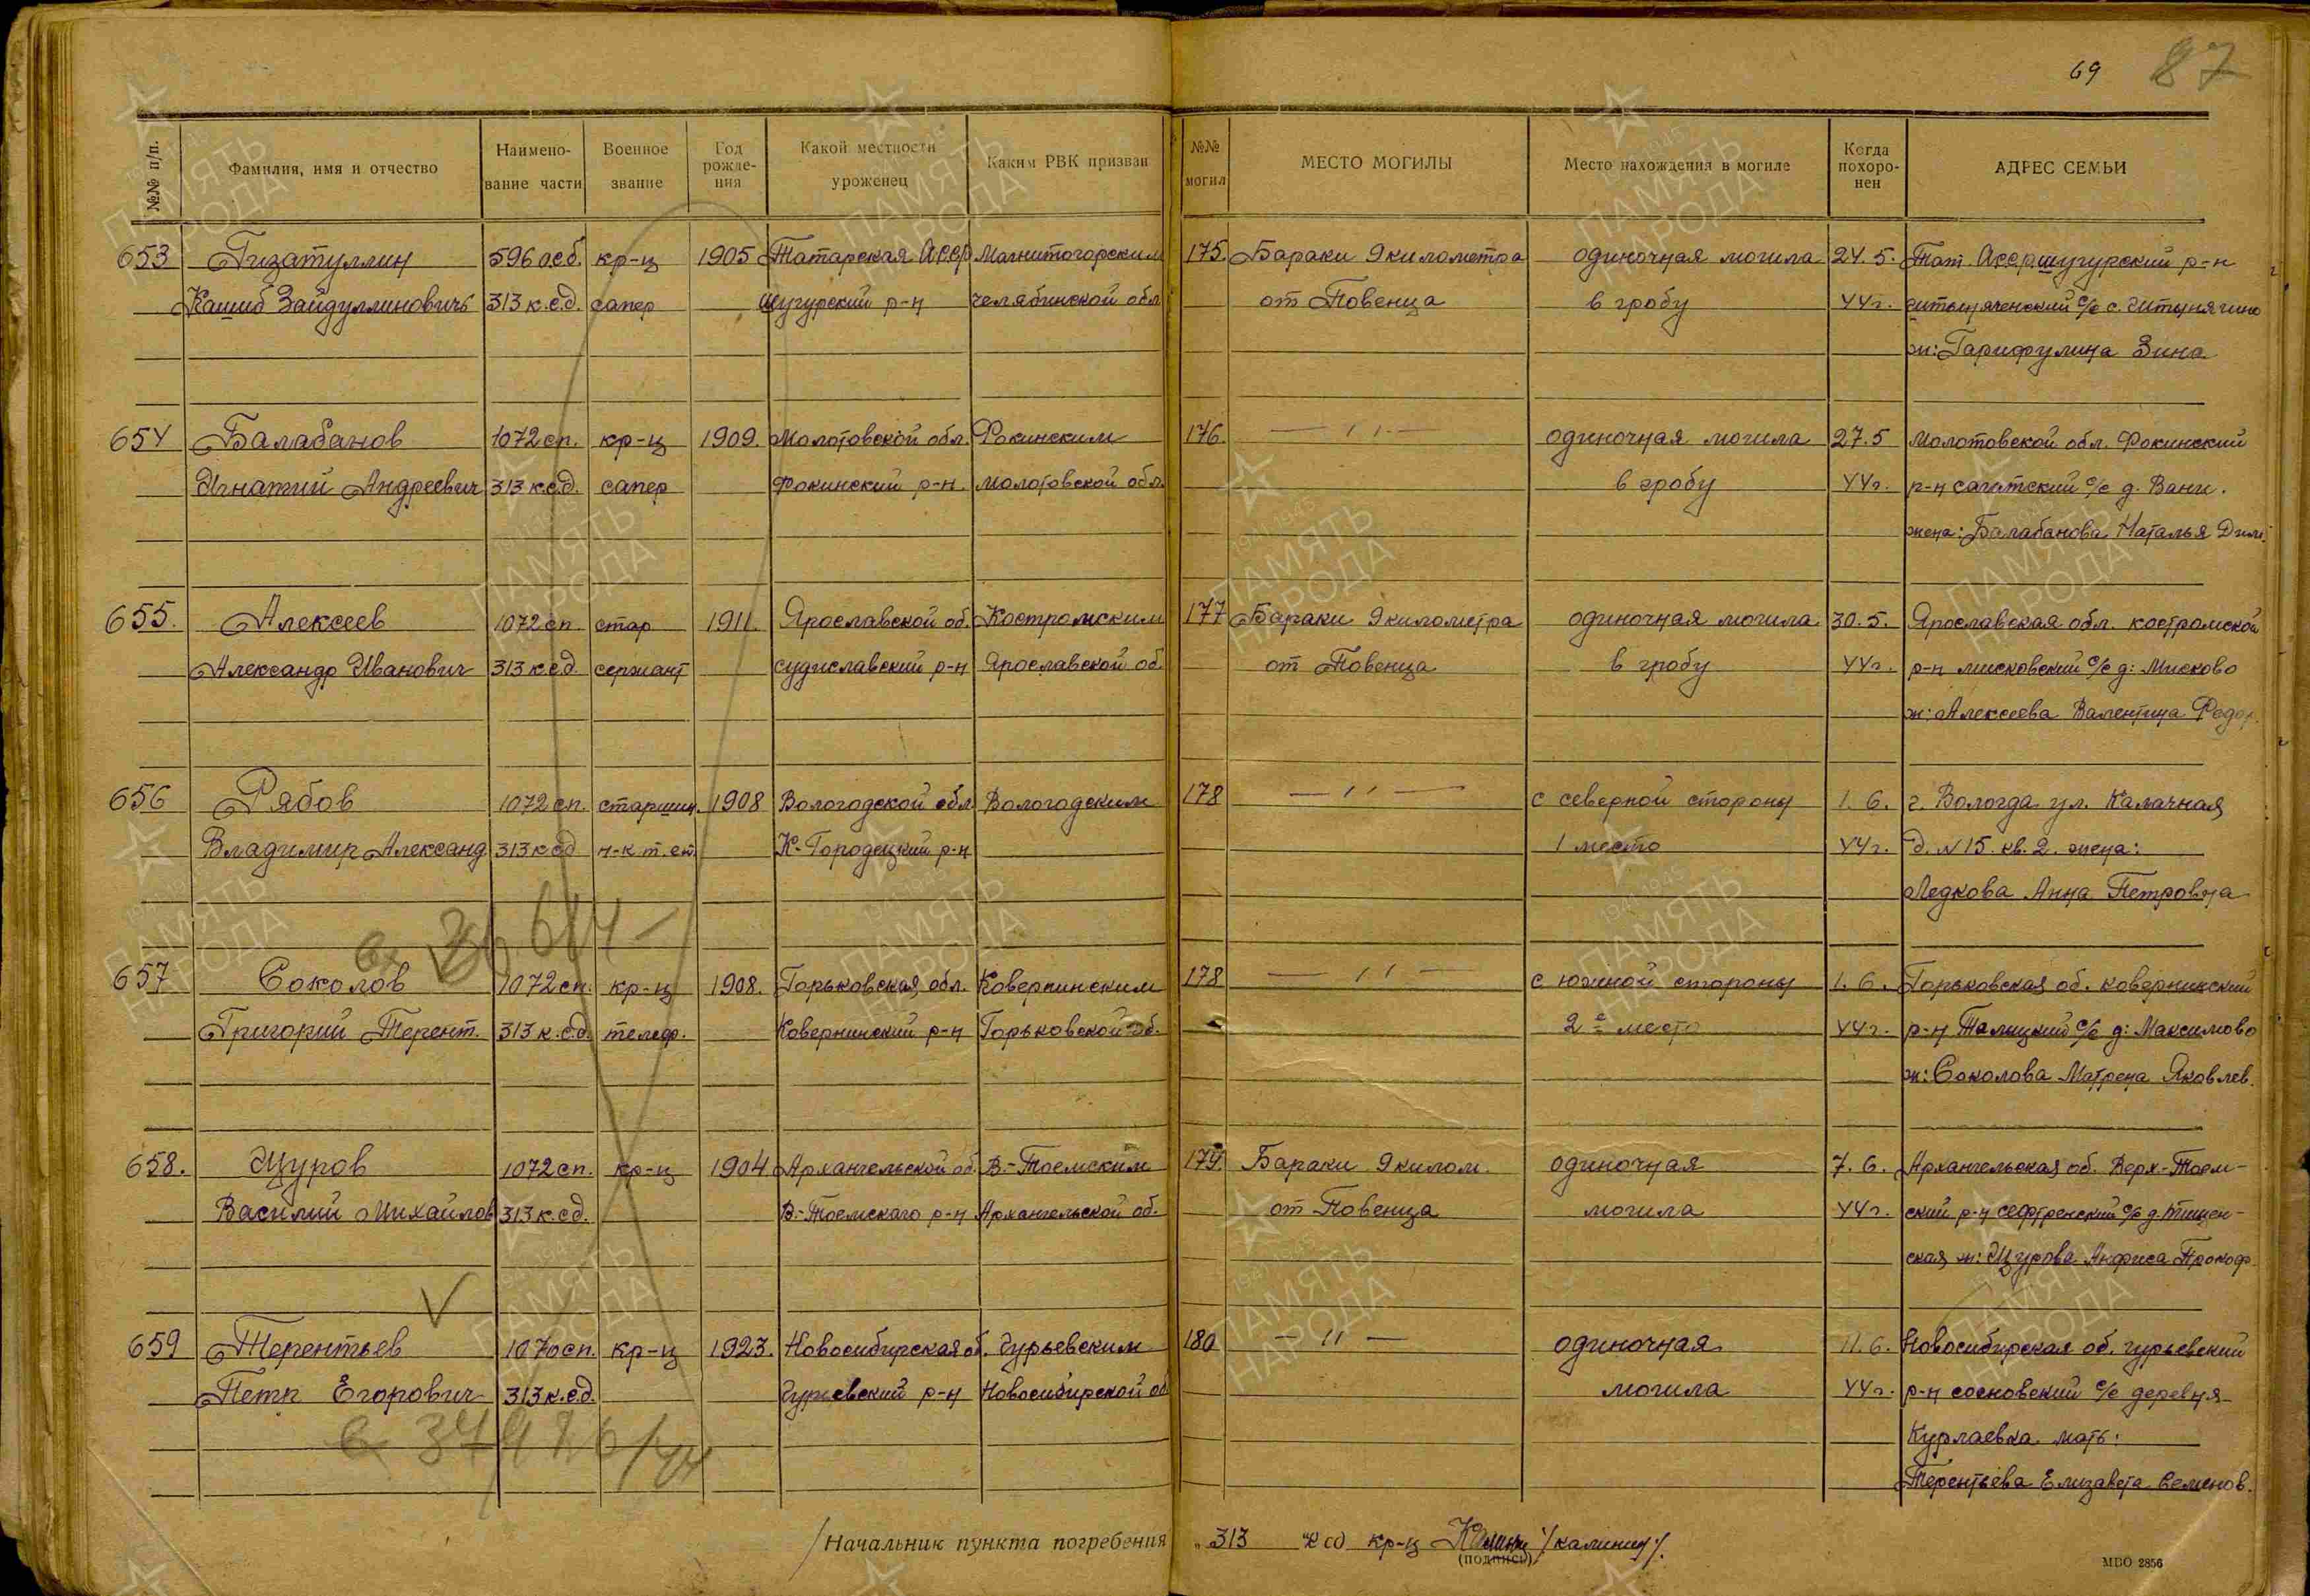 69 87
№№ п/п.
Фамилия, имя и отчество
Наимено-
вание части
Военное
звание
Год
рожде-
ния
Какой местности
уроженец
Каким РВК призван
№№
могил
МЕСТО МОГИЛЫ
Место нахождения в могиле
Когда
похоро-
нен
АДРЕС СЕМЬИ
653 Гизатуллин 596 осб. кр-ц 1905 Татарская Асср Магнитогорским 175. Бараки 9 километра одиночная могила 24.5. Тат. Асср шугурский р-н
Кашиб Зайдуллиновичъ 313 к.с.д. сапер шугурский р-н челябинской обл от Повенца в гробу 44г. с/с с.
ж: Гарифулина Зина
654 Балабанов 1072 сп. кр-ц 1909. Молотовской обл. Фокинским 176. — 11 — одиночная могила 27.5 Молотовской обл. Фокинский
Игнатий Андреевич 313 к.с.д. сапер Фокинский р-н Молотовской обл. в гробу 44г. р-н с/с д. Ванч.
жена: Балабанова Наталья Дим.
655. Алексеев 1072 сп стар 1911. Ярославской об. Костромским 177 Бараки 9 километра одиночная могила 30.5. Ярославская обл. костромской
Александр Иванович 313 к.с.д сержант судиславский р-н Ярославской об. от Повенца в гробу 44г. р-н мисковский с/с д: Мисково
ж: Алексеева Валентина Федор.
656 Рябов 1072 сп. старшин. 1908 Вологодской обл Вологодским 178 — 11 — с северной стороны 1.6. г. Вологда ул. Калачная
Владимир Александ 313 к с д К-Городецкий р-н 1 место 44г. д. № 15. кв. 2. жена:
Ледкова Анна Петровна
657 Соколов 1072 сп. кр-ц 1908. Горьковская обл. Ковернинским 178 — 11 — с южной стороны 1.6. Горьковская об. ковернинский
Григорий Терент. 313 к.с.д. телеф. Ковернинский р-н Горьковской об. 2е место 44г. р-н с/с д: Максимово
ж: Соколова Матрена Яковлев.
658. Щуров 1072 сп. кр-ц 1904 Архангельской об. В.-Тоемским 179 Бараки 9 килом. одиночная 7.6. Архангельская об. Верх-Тоем-
Василий Михайлов 313 к.с.д. В.-Тоемскаго р-н Архангельской об. от Повенца могила 44г. ский р-н с/с д.
ская ж: Щурова Анфиса Прокоф.
659 Терентьев 1070 сп. кр-ц 1923. Новосибирская об. Гурьевским 180 — 11 — одиночная 11.6. Новосибирская об. гурьевский
Петр Егорович 313 к.с.д. Гурьевский р-н Новосибирской об могила 44г. р-н сосновский с/с деревня
Курлаевка мать:
Терентьева Елизавета Семенов.
/Начальник пункта погребения „313 " к сд кр-ц /калинин/.
(подпись)
МВО 2856
1941-1945
ПАМЯТЬ
НАРОДА